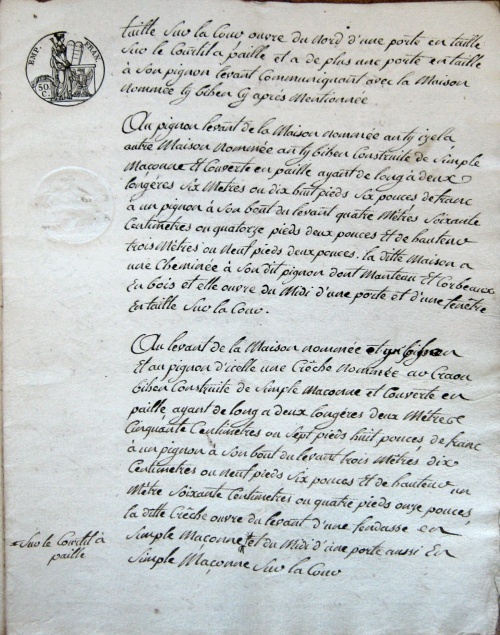 EMP. FRAN.
50 C.
taille Sur la Cour ouvre du Nord d'une porte en taille
Sur le Courtil a paille et a de plus une porte en taille
à Son pignon levant Communiquant avec la Maison
nommée ty bihen Cy après Mentionnée
Au pignon levant de la Maison nommée an ty izela
autre Maison nommée an ty bihen Construite de Simple
Maçonne Et Couverte en paille ayant de long à deux
longères Six Mètres ou dix huit pieds Six pouces de franc
à un pignon à Son bout du levant quatre Mètres Soixante
Centimetres ou quatorze pieds deux pouces Et de hauteur
trois Mètres ou Neuf pieds deux pouces. la ditte Maison a
une Cheminée à Son dit pignon dont Manteau Et Corbeaux
En bois et elle ouvre du Midi d'une porte et d'une fenêtre
En taille Sur la Cour.
Au levant de la Maison nommée
Et au pignon d'icelle une Crêche nommée ar Craou
bihen Construite de Simple Maçonne et Couverte en
paille, ayant de long a deux longères deux Mètres
Cinquante Centimètres ou Sept pieds huit pouces de franc
à un pignon à Son bout du levant trois Mètres dix
Centimetres ou Neuf pieds Six pouces Et de hauteur un
Mètre Soixante Centimetres ou quatre pieds onze pouces,
la ditte Crêche ouvre du levant d'une fendasse en
Simple Maçonne et du Midi d'une porte aussi En
Simple Maçonne Sur la Cour
Sur le Courtil à
paille